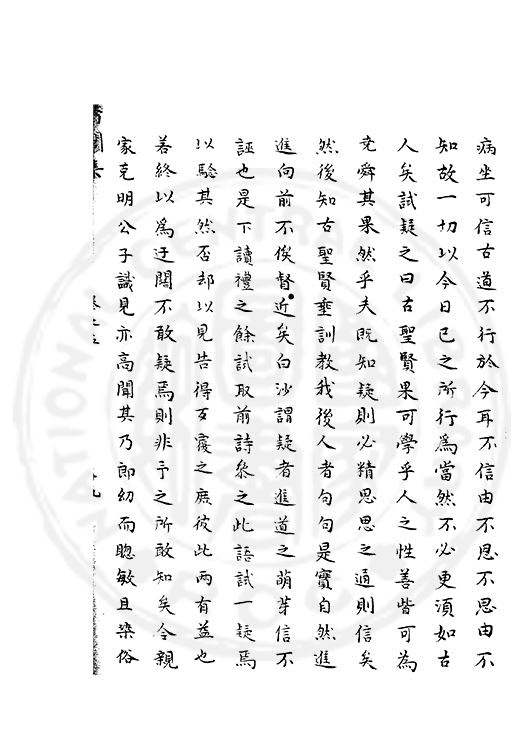 病坐可信古道不行於今耳不信由不思不思由不
知故一切以今日已之所行為當然不必更須如古
人矣試疑之曰古聖賢果可學乎人之性善皆可為
堯舜其果然乎夫既知疑則必精思思之通則信矣
然後知古聖賢垂訓教我後人者句句是實自然進
進向前不俟督近矣白沙謂疑者進道之萌芽信不
誣也是下讀禮之餘試取前詩叅之此語試一疑焉
以驗其然否却以見告得互覆之庶彼此兩有益也
若終以為迂闊不敢疑焉則非予之所敢知矣今親
家克明公子識見亦高聞其乃郎幼而聰敏且染俗